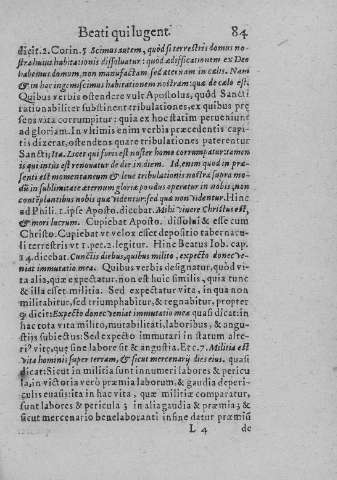 Beati qui lugent. 84
dicit. 2. Corin. 5 Scimus autem, quód si terrestris domus no-
stra huius habitationis dissoluatur: quod ædificationem ex Deo
habemus domum, non manufactam sed æternam in cælis. Nam
& in hoc ingemiscimus habitationem nostram: quæ de cælo est
Quibus verbis ostendere vult Apostolus, quód Sancti
rationabiliter substinent tribulationes, ex quibus præ
sens vita corrumpitur: quia ex hoc statim perueniunt
ad gloriam. In vltimis enim verbis præcedentis capi-
tis dixerat, ostendens quare tribulationes paterentur
Sancti; Ita. Licet qui foris est noster homo corrumpatur: tamen
is qui intus est renouatur de die in diem. Id, enim quod in præ-
senti est momentaneum & leue tribulationis nostræ supra mo-
dũ in sublimitate æternum gloriæ pondus operatur in nobis, non
contẽplantibus nobis quæ videntur, sed quæ non videntur. Hinc
ad Phili. 1. ipse Aposto. dicebat. Mihi viuere Christus est,
& mori lucrum. Cupiebat Aposto. dissolui & esse cum
Christo. Cupiebat vt velox esset depositio tabernacu-
li terrestris vt 1. pet. 2. legitur. Hinc Beatus Iob. cap.
14. dicebat. Cunctis diebus, quibus milito, expecto donec ve-
niat immutatio mea. Quibus verbis designatur, quòd vi-
ta alia, quæ expectatur, non est huic similis, quia tunc
& illa esset militia. Sed expectatur vita, in qua non
militabitur, sed triumphabitur, & regnabitur, propter
q; dicit: Expecto donec veniat immutatio mea quasi dicat: in
hac tota vita milito, mutabilitati, laboribus, & angu-
stijs subiectus: Sed expecto immutari in statum alte-
ri9 vitę, quę sine labore sit & angustia. Etc. 7. Militia est
vita hominis super terram, & sicut mercenarij dies eius. quasi
dicat: Sicut in militia sunt innumeri labores & pericu
la, in victoria verò præmia laborum, & gaudia deperi-
culis euasis: ita in hac vita, quæ militiæ comparatur,
sunt labores & pericula; in alia gaudia & præmia; &
sicut mercenario bene laboranti in fine datur præmiũ
L 4 de